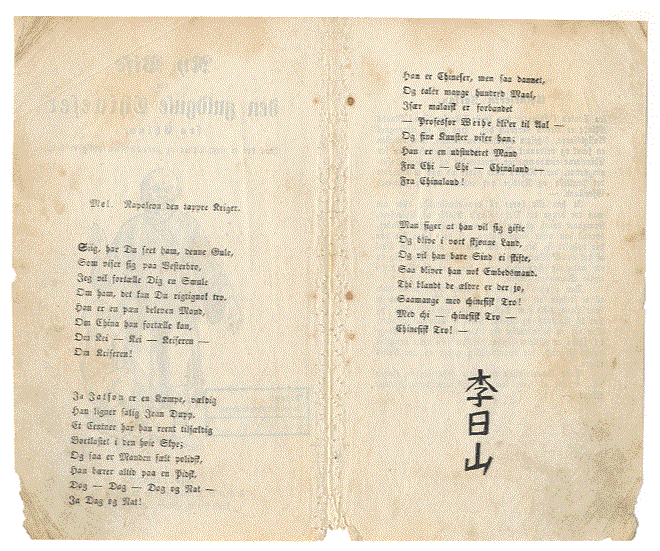 Mel. Napoleon den tappre Kriger.
Siig, har Du seet ham, denne Gule,
Som viser sig paa Vesterbro,
Jeg vil fortælle Dig en Smule
Om ham, det kan Du rigtignok tro.
Han er en pæn beleven Mand,
Om China han fortælle kan,
Om Kei — Kei — Keiseren —
Om Keiseren!
Ja Jatson er en Kæmpe, vældig
Han ligner salig Jean Dupp.
Et Centner har han reent tilfældig
Bortkastet i den høie Skye;
Og saa er Manden fælt polidsk,
Han bærer altid paa en Pidsk,
Dag — Dag — Dag og Nat —
Ja Dag og Nat!
Han er Chineser, men saa dannet,
Og taler mange hundred Maal,
Især malaisk er forbandet
— Professor Weihe bli'er til Aal —
Og fine Kunster viser han;
Han er en udstuderet Mand
Fra Chi — Chi — Chinaland —
Fra Chinaland!
Man siger at han vil sig gifte
Og blive i vort skjønne Land,
Og vil han bare Sind ei skifte,
Saa bliver han nok Embedsmand.
Thi blandt de ældre er der jo,
Saamange med chinesisk Tro!
Med chi — chinesisk Tro —
Chinesisk Tro! —
李日山